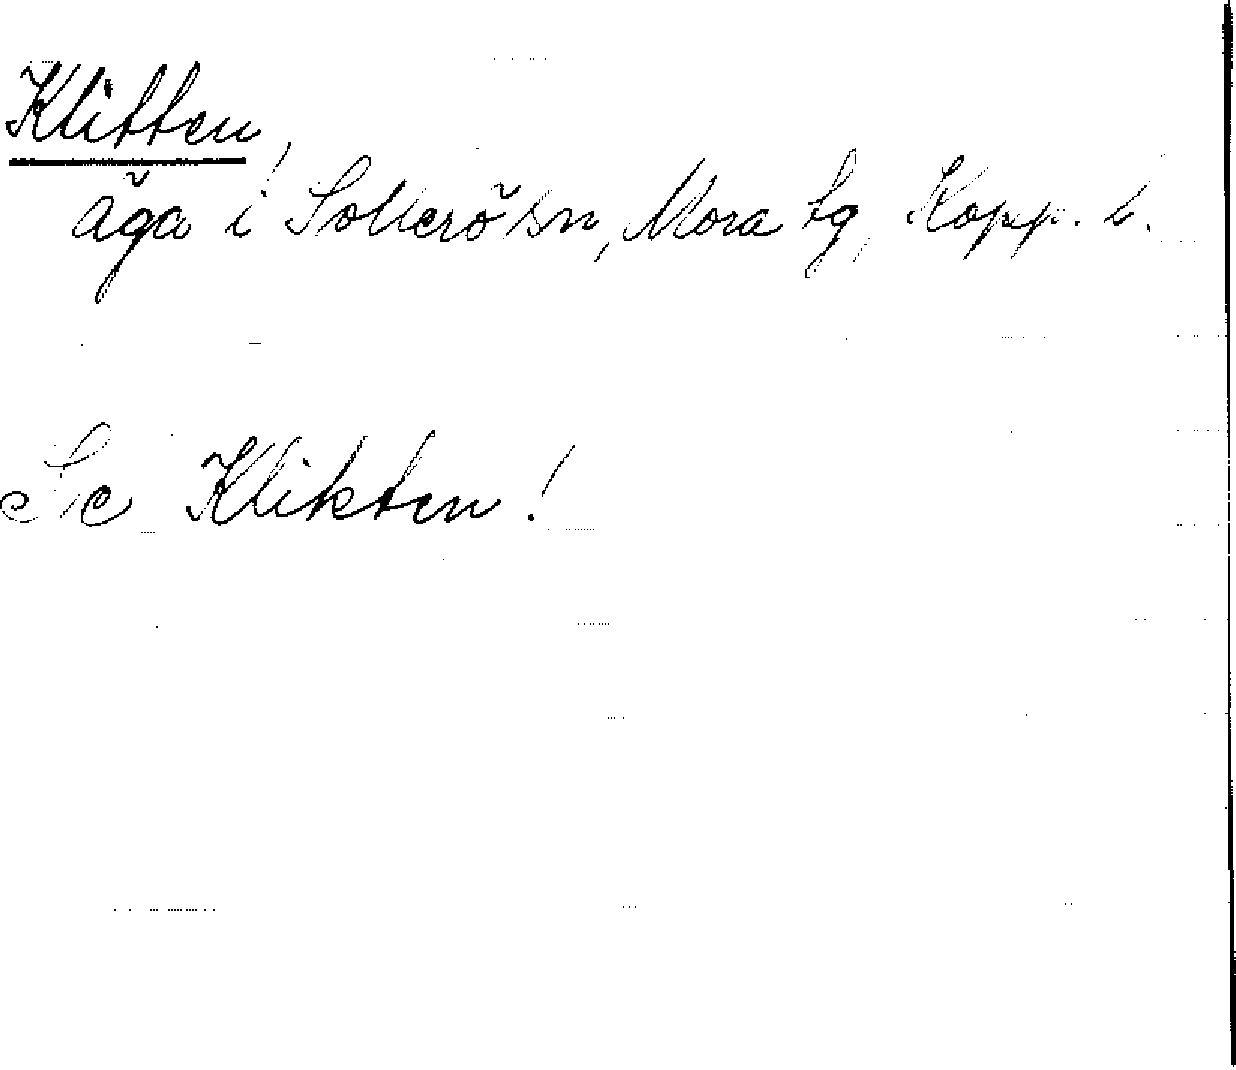 Klitten
äga i Sollerö sn, Mora tg, Kopp. l.
Se Klikten!